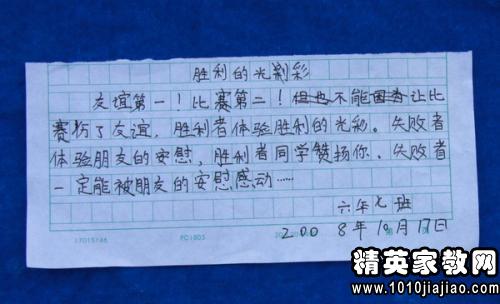 胜利的光彩
友谊第一！比赛第二！但也不能让比
赛伤了友谊，胜利者体验胜利的光彩。失败者
体验朋友的安慰，胜利者同学赞扬你、失败者
一定能被朋友的安慰感动……
六年七班
2008年10月17日
精英家教网
www.1010jiajiao.com